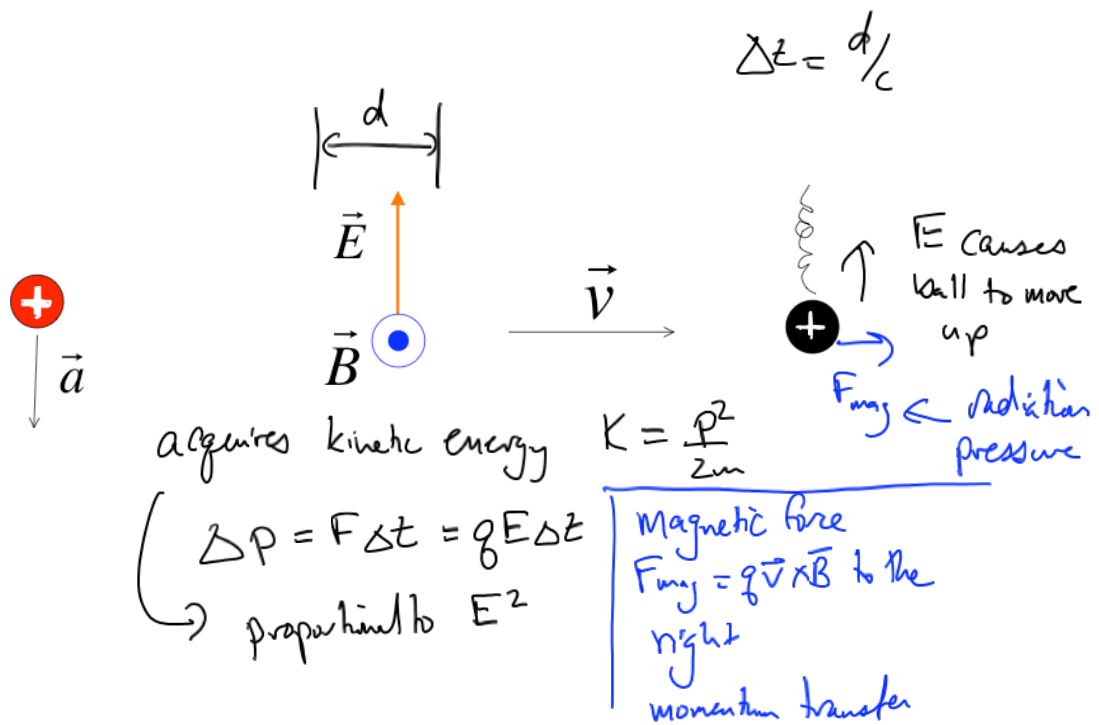 Δt = d/c
d
E⃗
B⃗
v⃗
+
a⃗
+
E causes
ball to move
up
F_mag ← radiation
pressure
acquires kinetic energy K = p²/2m
Δp = FΔt = qEΔt
proportional to E²
Magnetic force
F_mag = qv⃗ × B̄ to the
right
momentum transfer